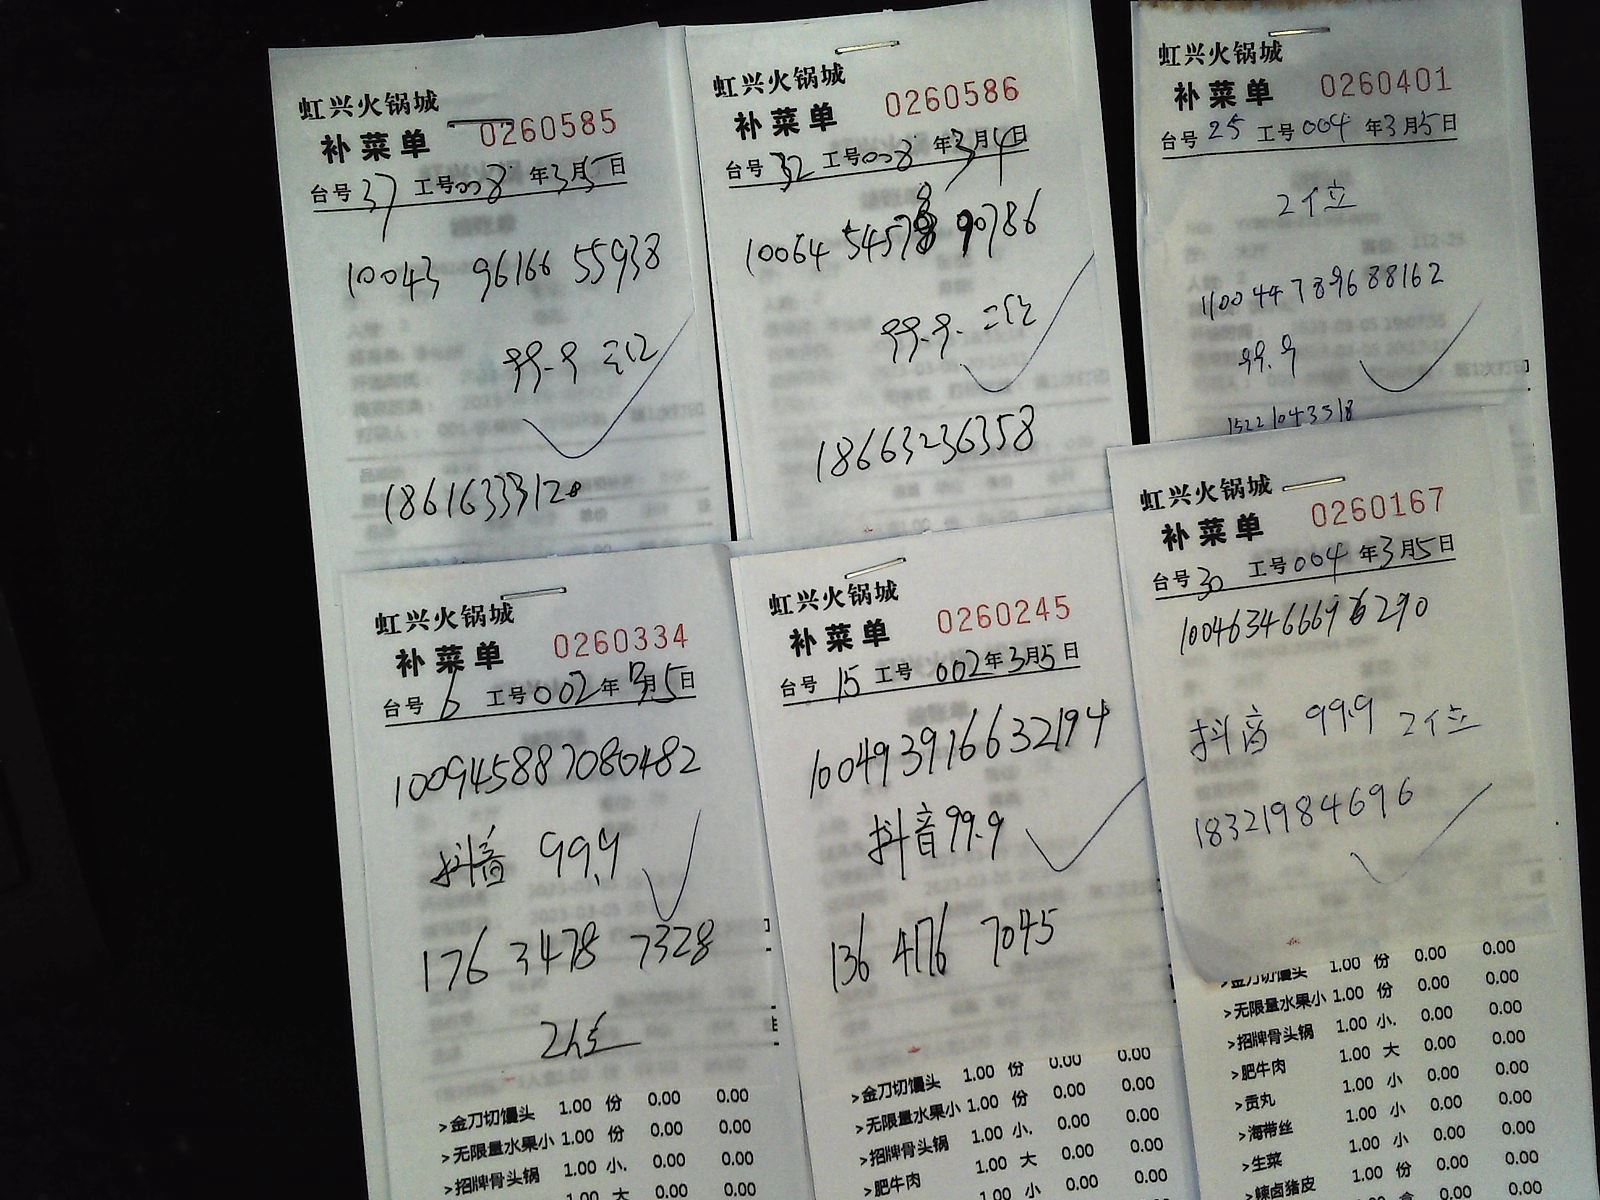 虹兴火锅城
补菜单 0260585
台号 37 工号008 年3月5日
10043 96166 55938
99.9 二位
18616333120
虹兴火锅城
补菜单 0260586
台号 32 工号008 年3月4日
10064 54578 90786
99.9. 二位
18663236358
虹兴火锅城
补菜单 0260401
台号 25 工号004 年3月5日
2位
110044789688162
99.9
15221043518
虹兴火锅城
补菜单 0260334
台号 6 工号002年3月5日
100945887080482
抖音 99.9
176 3478 7328
2位
>金刀切馒头 1.00 份 0.00 0.00
>无限量水果小 1.00 份 0.00 0.00
>招牌骨头锅 1.00 小. 0.00 0.00
1.00 大 0.00 0.00
虹兴火锅城
补菜单 0260245
台号 15 工号 002年3月5日
100493916632194
抖音99.9
136 4176 7045
>金刀切馒头 1.00 份 0.00 0.00
>无限量水果小 1.00 份 0.00 0.00
>招牌骨头锅 1.00 小. 0.00 0.00
>肥牛肉 1.00 大 0.00 0.00
1.00 小 0.00 0.00
虹兴火锅城
补菜单 0260167
台号 30 工号004 年3月5日
100463466696290
抖音 99.9 2位
18321984696
>金刀切馒头 1.00 份 0.00 0.00
>无限量水果小 1.00 份 0.00 0.00
>招牌骨头锅 1.00 小. 0.00 0.00
>肥牛肉 1.00 大 0.00 0.00
>贡丸 1.00 小 0.00 0.00
>海带丝 1.00 小 0.00 0.00
>生菜 1.00 小 0.00 0.00
>辣卤猪皮 1.00 份 0.00 0.00